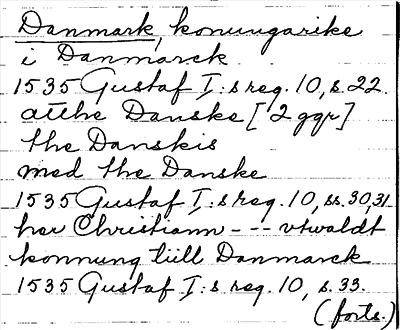 Danmark, konungarike
i Danmarck
1535 Gustaf I:s reg. 10, s. 22.
atthe Danske [2 ggr]
the Danskis
med the Danske
1535 Gustaf I:s reg. 10, ss. 30, 31
her Christiann --- vtwaldt
konnung tiill Danmarck
1535 Gustaf I:s reg. 10, s. 33.
(forts.)